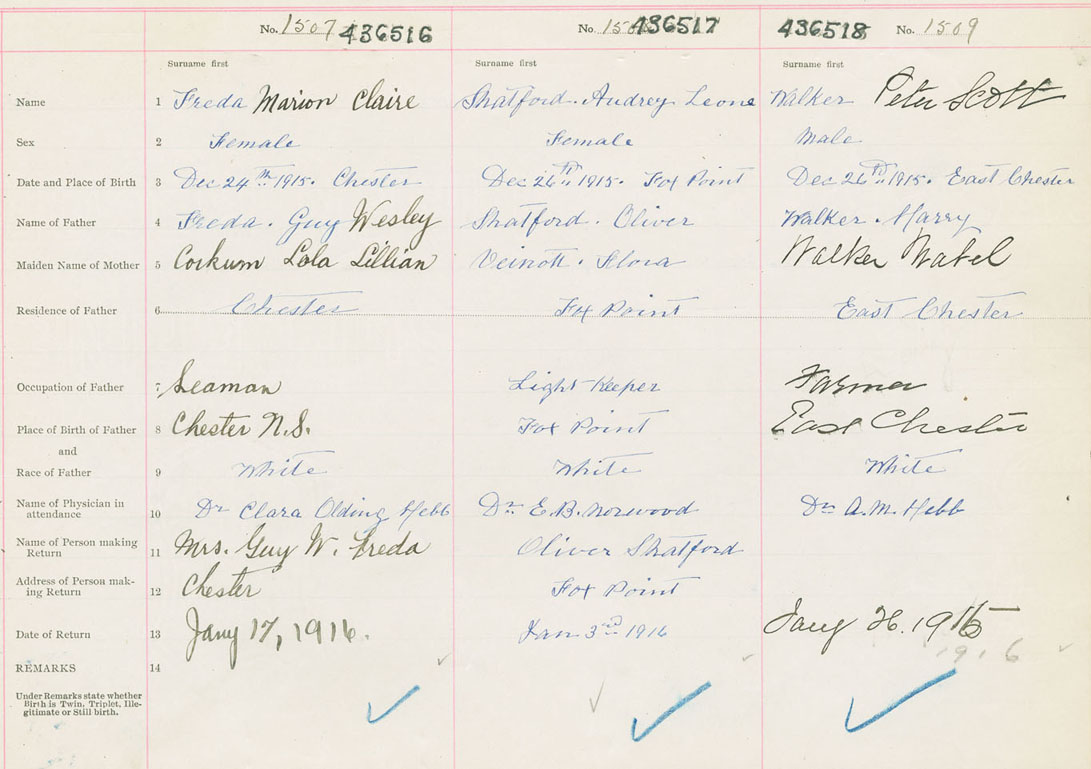 No. 1507 436516 No. 150 436517 436518 No. 1509
Surname first Surname first Surname first
Name 1 Freda Marion Claire Shatford. Audrey Leone Walker Peter Scott
Sex 2 Female Female Male
Date and Place of Birth 3 Dec 24th 1915. Chester Dec 26th 1915. Fox Point Dec 26th 1915. East Chester
Name of Father 4 Freda. Guy Wesley Shatford. Oliver Walker. Harry
Maiden Name of Mother 5 Corkum Lola Lillian Veinott. Flora Walker Mabel
Residence of Father 6 Chester Fox Point East Chester
Occupation of Father 7 Seaman Light Keeper Farmer
Place of Birth of Father 8 Chester N.S. Fox Point East Chester
and
Race of Father 9 White White White
Name of Physician in
attendance 10 Dr Clara Olding Hebb Dr. E.B. Norwood Dr. A.M. Hebb
Name of Person making
Return 11 Mrs. Guy W. Freda Oliver Shatford
Address of Person mak-
ing Return 12 Chester Fox Point
Date of Return 13 Jany 17, 1916. Jan 3rd 1916 Jany 26. 1915
1916
REMARKS 14
Under Remarks state whether
Birth is Twin, Triplet, Ille-
gitimate or Still birth.